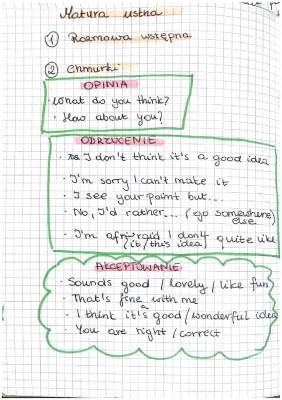 Matura ustna
① Rozmowa wstępna
② Chmurki
OPINIA
· What do you think?
· How about you?
ODRZUCENIE
· I don't think it's a good idea
· I'm sorry I can't make it
· I see your point but...
· No, I'd rather... (go somewhere
else)
· I'm afraid I don't quite like
(it/this idea)
AKCEPTOWANIE
· Sounds good / lovely / like fun
· That's fine with me
· I think it's a good/wonderful idea
· You are right / correct